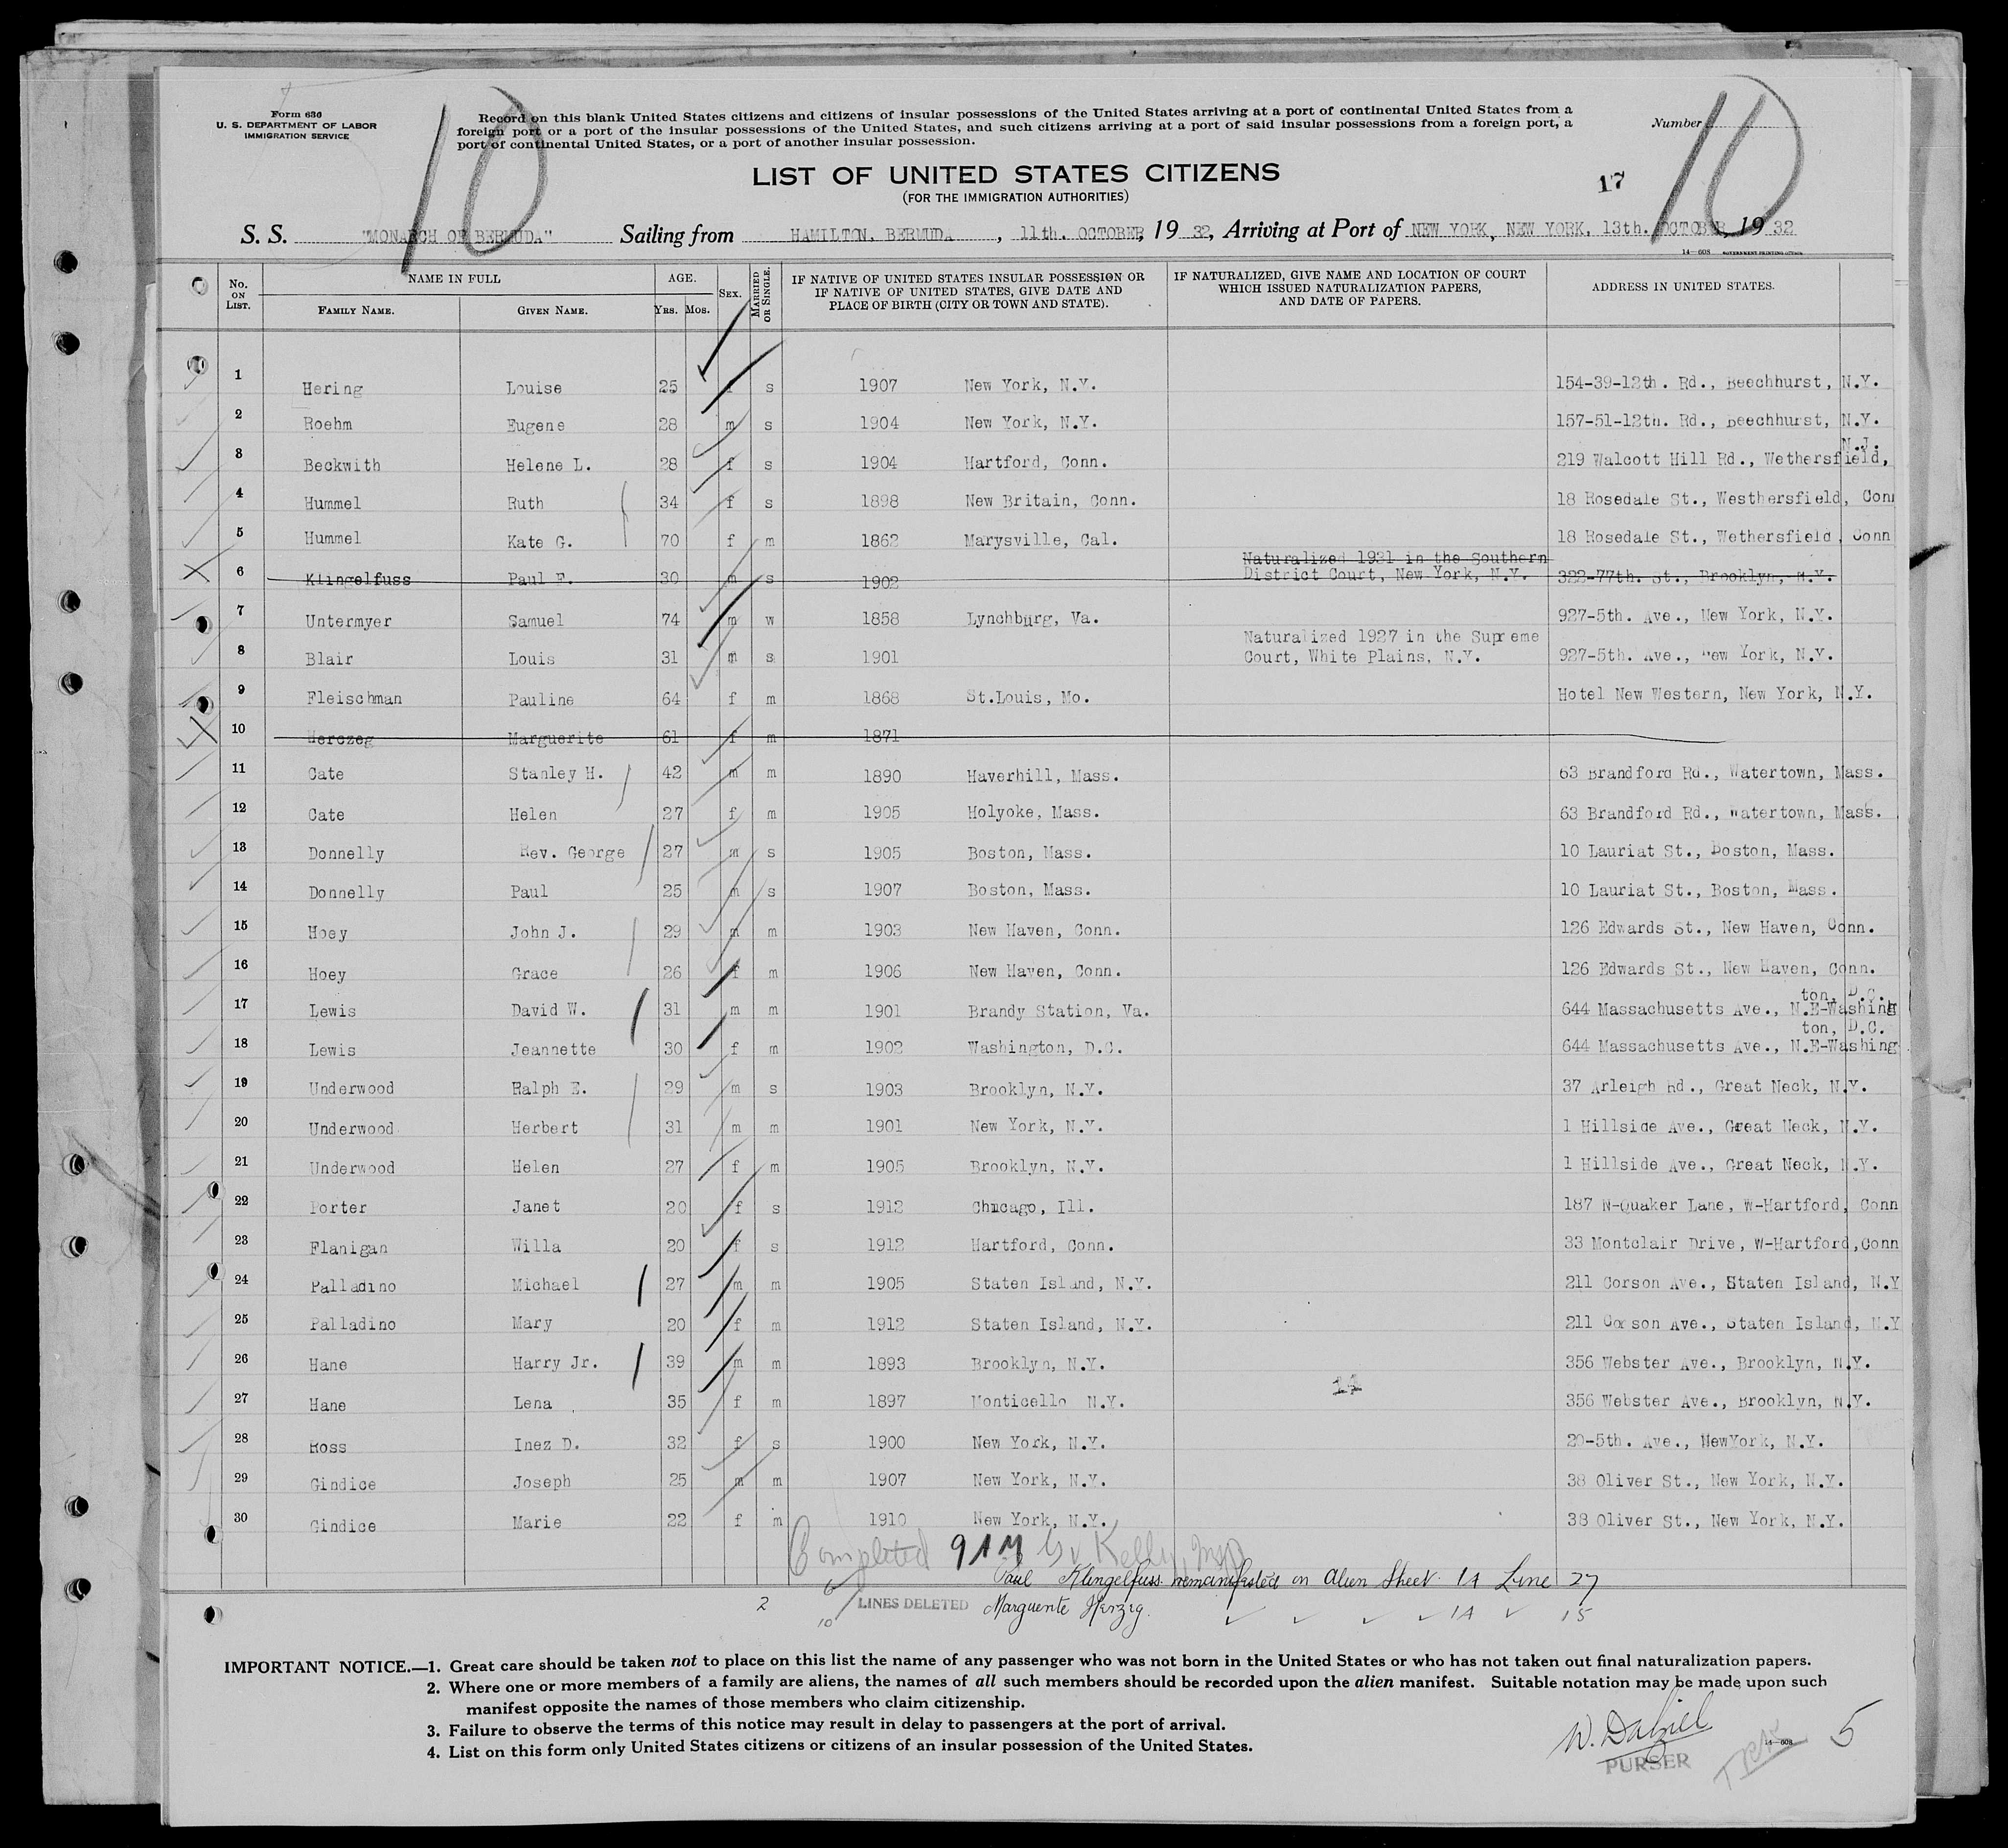 10 10
Form 630
U. S. DEPARTMENT OF LABOR
IMMIGRATION SERVICE
Record on this blank United States citizens and citizens of insular possessions of the United States arriving at a port of continental United States from a
foreign port or a port of the insular possessions of the United States, and such citizens arriving at a port of said insular possessions from a foreign port, a
port of continental United States, or a port of another insular possession.
Number
LIST OF UNITED STATES CITIZENS
(FOR THE IMMIGRATION AUTHORITIES)
17
S. S. "MONARCH OF BERMUDA" Sailing from HAMILTON, BERMUDA, 11th. OCTOBER, 1932, Arriving at Port of NEW YORK, NEW YORK, 13th. OCTOBER, 1932
14—608 GOVERNMENT PRINTING OFFICE
No. ON LIST. NAME IN FULL FAMILY NAME. GIVEN NAME. AGE. YRS. MOS. SEX. MARRIED OR SINGLE. IF NATIVE OF UNITED STATES INSULAR POSSESSION OR IF NATIVE OF UNITED STATES, GIVE DATE AND PLACE OF BIRTH (CITY OR TOWN AND STATE). IF NATURALIZED, GIVE NAME AND LOCATION OF COURT WHICH ISSUED NATURALIZATION PAPERS, AND DATE OF PAPERS. ADDRESS IN UNITED STATES.
1 Hering Louise 25 f s 1907 New York, N.Y. 154-39-12th. Rd., Beechhurst, N.Y.
2 Roehm Eugene 28 m s 1904 New York, N.Y. 157-51-12th. Rd., Beechhurst, N.Y.
N.J.
3 Beckwith Helene L. 28 f s 1904 Hartford, Conn. 219 Walcott Hill Rd., Wethersfield,
4 Hummel Ruth 34 f s 1898 New Britain, Conn. 18 Rosedale St., Westhersfield, Con
5 Hummel Kate G. 70 f m 1862 Marysville, Cal. 18 Rosedale St., Wethersfield, Conn
Naturalized 1931 in the Southern
6 Klingelfuss Paul F. 30 m s 1902 District Court, New York, N.Y. 322-77th. St., Brooklyn, N.Y.
7 Untermyer Samuel 74 m w 1858 Lynchburg, Va. 927-5th. Ave., New York, N.Y.
Naturalized 1927 in the Supreme
8 Blair Louis 31 m s 1901 Court, White Plains, N.Y. 927-5th. Ave., New York, N.Y.
9 Fleischman Pauline 64 f m 1868 St.Louis, Mo. Hotel New Western, New York, N.Y.
10 Herczeg Marguerite 61 f m 1871
11 Cate Stanley H. 42 m m 1890 Haverhill, Mass. 63 Brandford Rd., Watertown, Mass.
12 Cate Helen 27 f m 1905 Holyoke, Mass. 63 Brandford Rd., Watertown, Mass.
13 Donnelly Rev. George 27 m s 1905 Boston, Mass. 10 Lauriat St., Boston, Mass.
14 Donnelly Paul 25 m s 1907 Boston, Mass. 10 Lauriat St., Boston, Mass.
15 Hoey John J. 29 m m 1903 New Haven, Conn. 126 Edwards St., New Haven, Conn.
16 Hoey Grace 26 f m 1906 New Haven, Conn. 126 Edwards St., New Haven, Conn.
ton, D.C.
17 Lewis David W. 31 m m 1901 Brandy Station, Va. 644 Massachusetts Ave., N.E-Washing
ton, D.C.
18 Lewis Jeannette 30 f m 1902 Washington, D.C. 644 Massachusetts Ave., N.E-Washing
19 Underwood Ralph E. 29 m s 1903 Brooklyn, N.Y. 37 Arleigh Rd., Great Neck, N.Y.
20 Underwood Herbert 31 m m 1901 New York, N.Y. 1 Hillside Ave., Great Neck, N.Y.
21 Underwood Helen 27 f m 1905 Brooklyn, N.Y. 1 Hillside Ave., Great Neck, N.Y.
22 Porter Janet 20 f s 1912 Chicago, Ill. 187 N-Quaker Lane, W-Hartford, Conn
23 Flanigan Willa 20 f s 1912 Hartford, Conn. 33 Montclair Drive, W-Hartford, Conn
24 Palladino Michael 27 m m 1905 Staten Island, N.Y. 211 Corson Ave., Staten Island, N.Y
25 Palladino Mary 20 f m 1912 Staten Island, N.Y. 211 Corson Ave., Staten Island, N.Y
26 Hane Harry Jr. 39 m m 1893 Brooklyn, N.Y. 356 Webster Ave., Brooklyn, N.Y.
14
27 Hane Lena 35 f m 1897 Monticello N.Y. 356 Webster Ave., Brooklyn, N.Y.
28 Ross Inez D. 32 f s 1900 New York, N.Y. 20-5th. Ave., NewYork, N.Y.
29 Gindice Joseph 25 m m 1907 New York, N.Y. 38 Oliver St., New York, N.Y.
30 Gindice Marie 22 f m 1910 New York, N.Y. 38 Oliver St., New York, N.Y.
Completed 9 AM Kelly, Insp
Paul Klingelfuss remanifested on Alien Sheet 14 Line 27
2 6/10 LINES DELETED Marguente Herzeg. ✓ ✓ ✓ ✓ 14 ✓ 15
IMPORTANT NOTICE.—1. Great care should be taken not to place on this list the name of any passenger who was not born in the United States or who has not taken out final naturalization papers.
2. Where one or more members of a family are aliens, the names of all such members should be recorded upon the alien manifest. Suitable notation may be made upon such
manifest opposite the names of those members who claim citizenship.
3. Failure to observe the terms of this notice may result in delay to passengers at the port of arrival.
4. List on this form only United States citizens or citizens of an insular possession of the United States.
W. Dalziel
PURSER
14—608
5